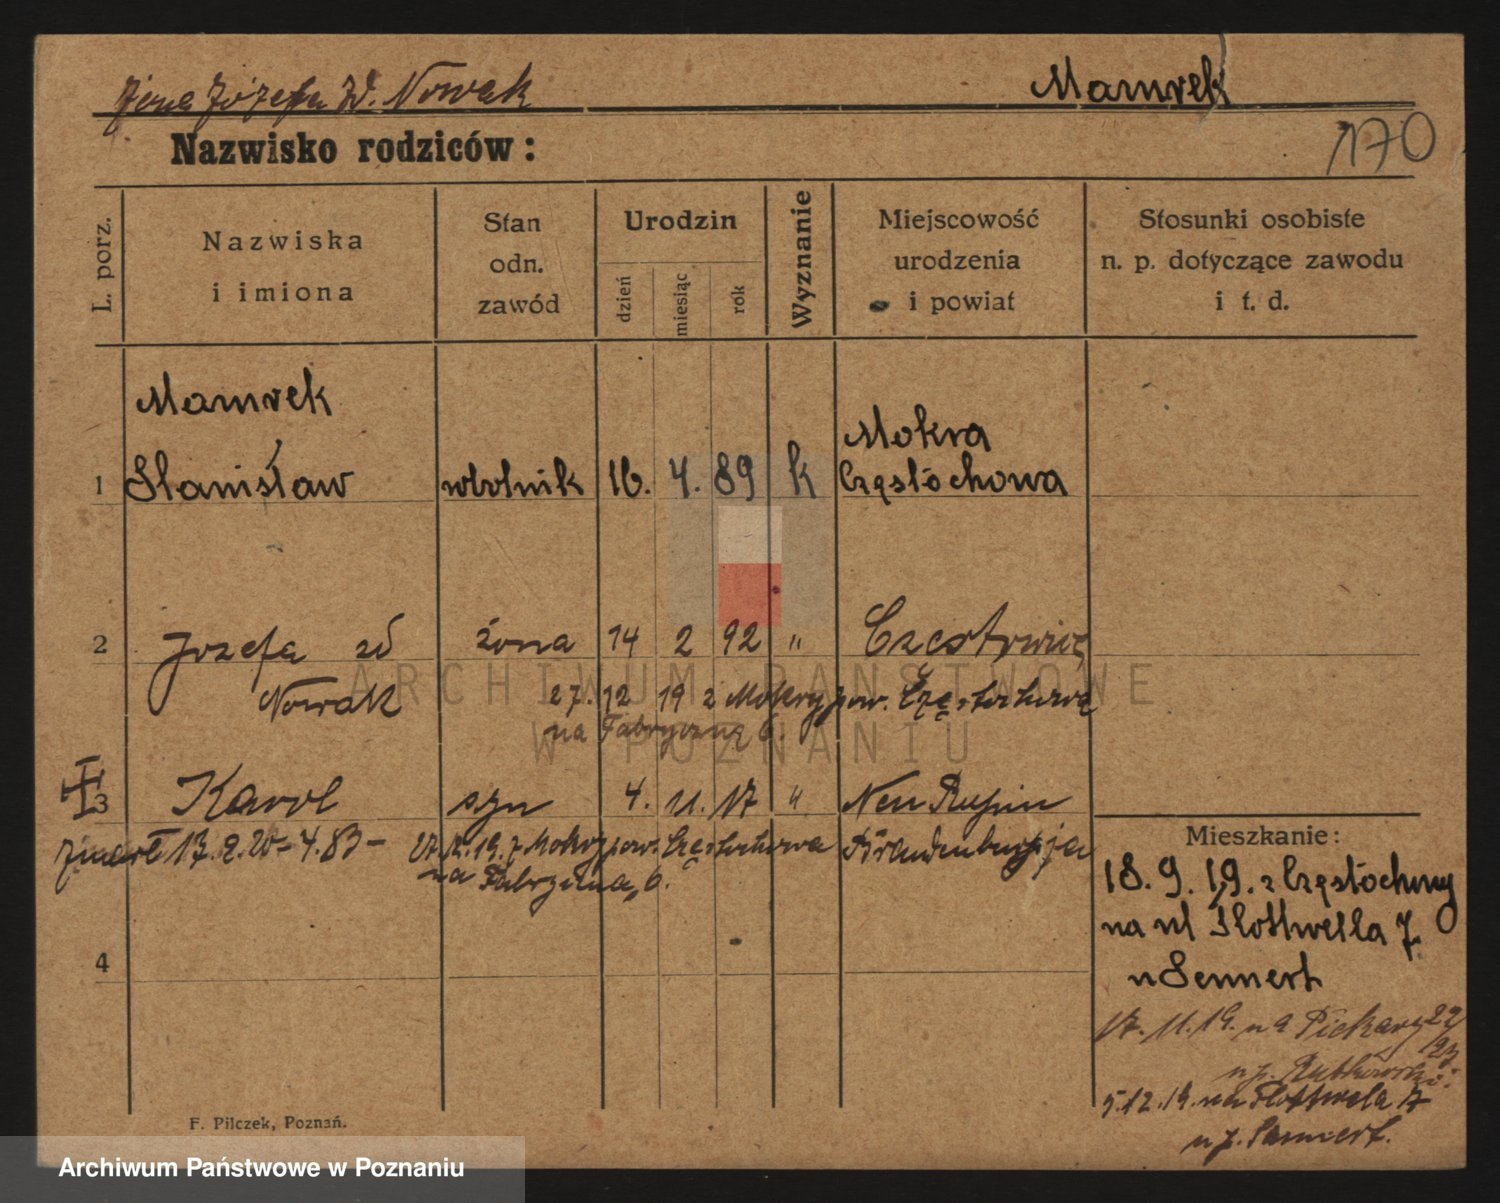 żona Józefa W. Nowak
Mamrek
170
Nazwisko rodziców:
L. porz.
Nazwiska
i imiona
Stan
odn.
zawód
Urodzin
dzień
miesiąc
rok
Wyznanie
Miejscowość
urodzenia
i powiat
Stosunki osobiste
n. p. dotyczące zawodu
i t. d.
Mamrek
Mokra
1 Stanisław robotnik 16. 4. 89 k Częstóchowa
2 Jozefa zd żona 14 2 92 "
Nowak 27. 12 19 z Mokry pow. Częstochowa
na Fabryczną 6.
3 Karol syn 4. 11. 17 " Neu Rupin
zmarł 13. 2. 20 - 4. 83 - 27. 12. 19. z Mokry pow. Częstochowa Brandenburgja
na Fabryczna 6.
Mieszkanie:
18. 9. 19. z Częstóchowy
na ul Flottwella 7.
u Sennert
4
17. 11. 19. na Piekary 22/23
u p.
5.12.19. na Flottwela 7
u p. Sennert.
F. Pilczek, Poznań.
ARCHIWUM PAŃSTWOWE
W POZNANIU
Archiwum Państwowe w Poznaniu